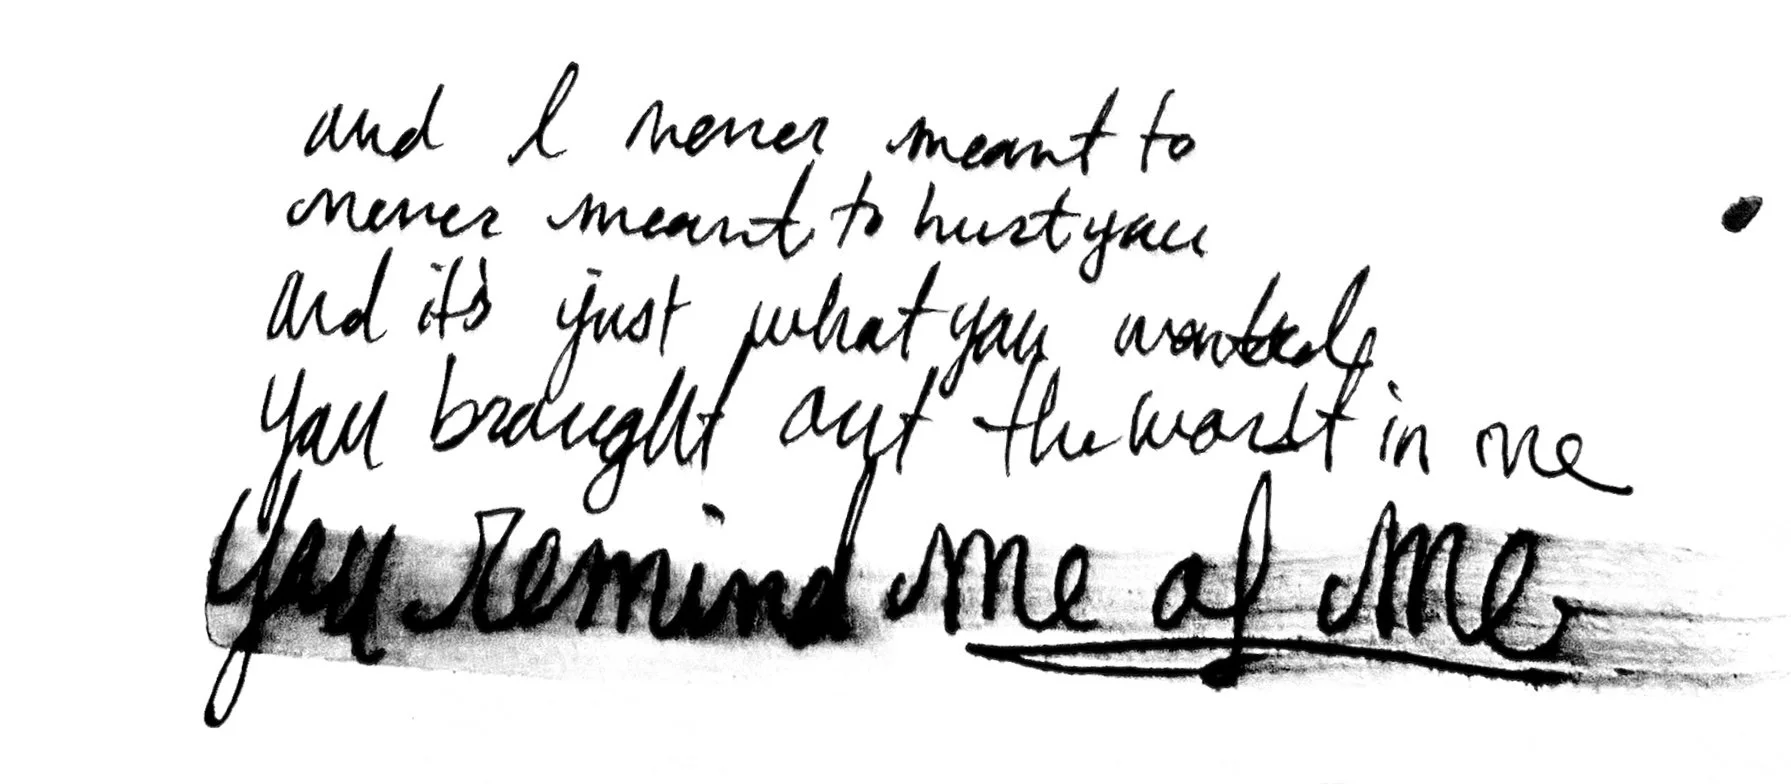 and I never meant to
never meant to hurt you
and it's just what you wanted
you brought out the worst in me
you remind me of me